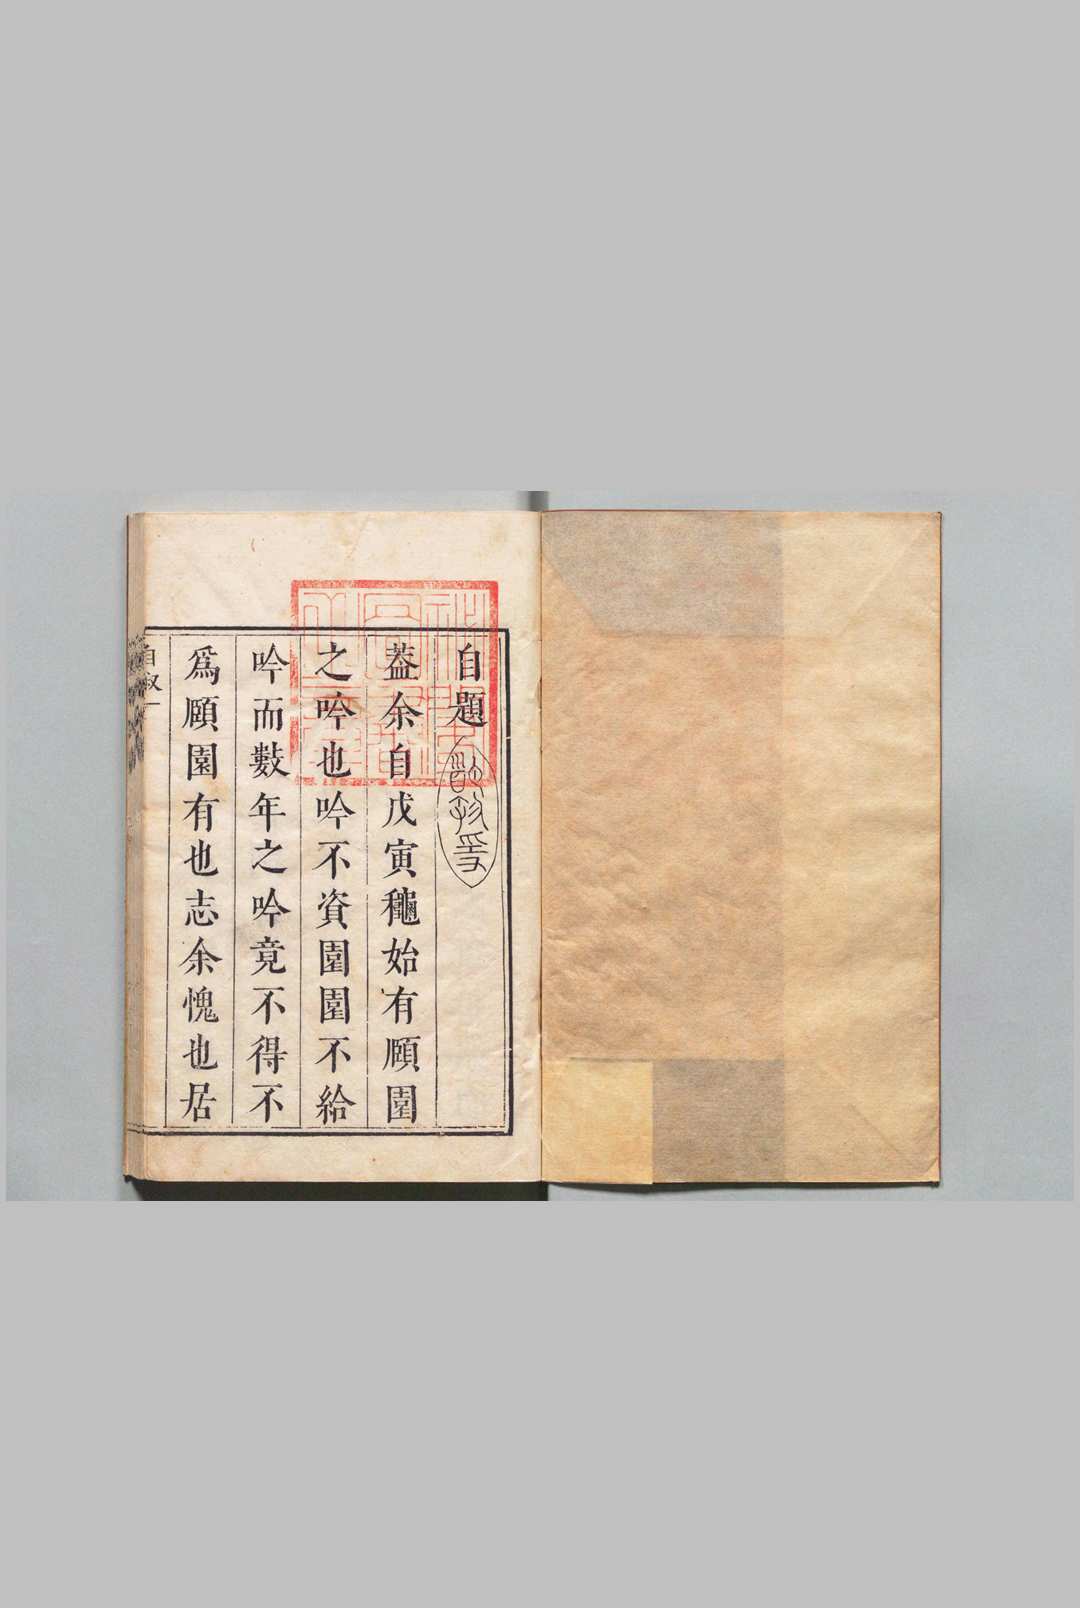 自題
蓋余自戊寅龝始有頋園
之吟也吟不資園園不給
吟而數年之吟竟不得不
爲頋園有也志余愧也居
自叙一